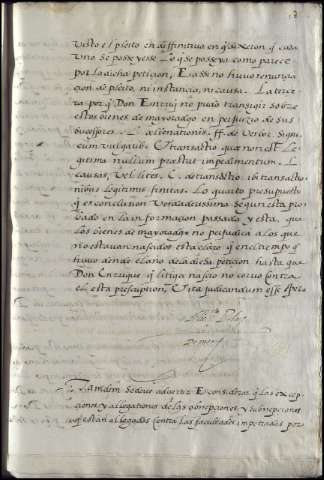 Visto el pleito en diffinitiva en q̃ dixeron q̃ cada
Uno se posseyesse Lo q̃ se posseya como parece
por la dicha peticion, E assi no huvo renunciaz
cion de pleito, ni instancia, ni causa. La terce
ra por q̃ Don Enrriq̃ no pudo transigir sobre
estos bienes de mayoradgo en perjuizio de sus
sucessores. L. alienationis. ff. de verbor. signi.
cum vulgarib. Et transactio quæ non est Le
gitima nullum præstat impedimentum. L.
causas, Vel lites. C. de transactio. ib. transactio
nibus legitimis finitas. Lo quarto presupuesto
q̃ es conclusion Verdadera segun esta pro
bado en la informacion passada y esta, que
los bienes de mayoradgo no perjudica a los que
no estavan nascidos esta claro q̃ en el tiempo q̃
huvo donde el año de la dicha peticion hasta que
Don Enrrique q̃ litiga nascio no corrio contra
el esta prescription, Et ita judicandum esse spero
Tambien se deve advertir E considerar q̃ las excep
ciones y allegationes de las obrepciones y subrepciones
q̃ estan allegadas contra las facultades impetradas por